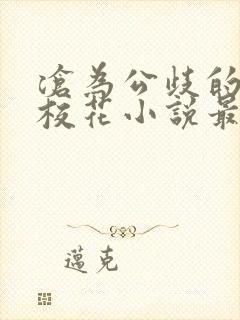 滄為公歧的
校花小說最
邁克